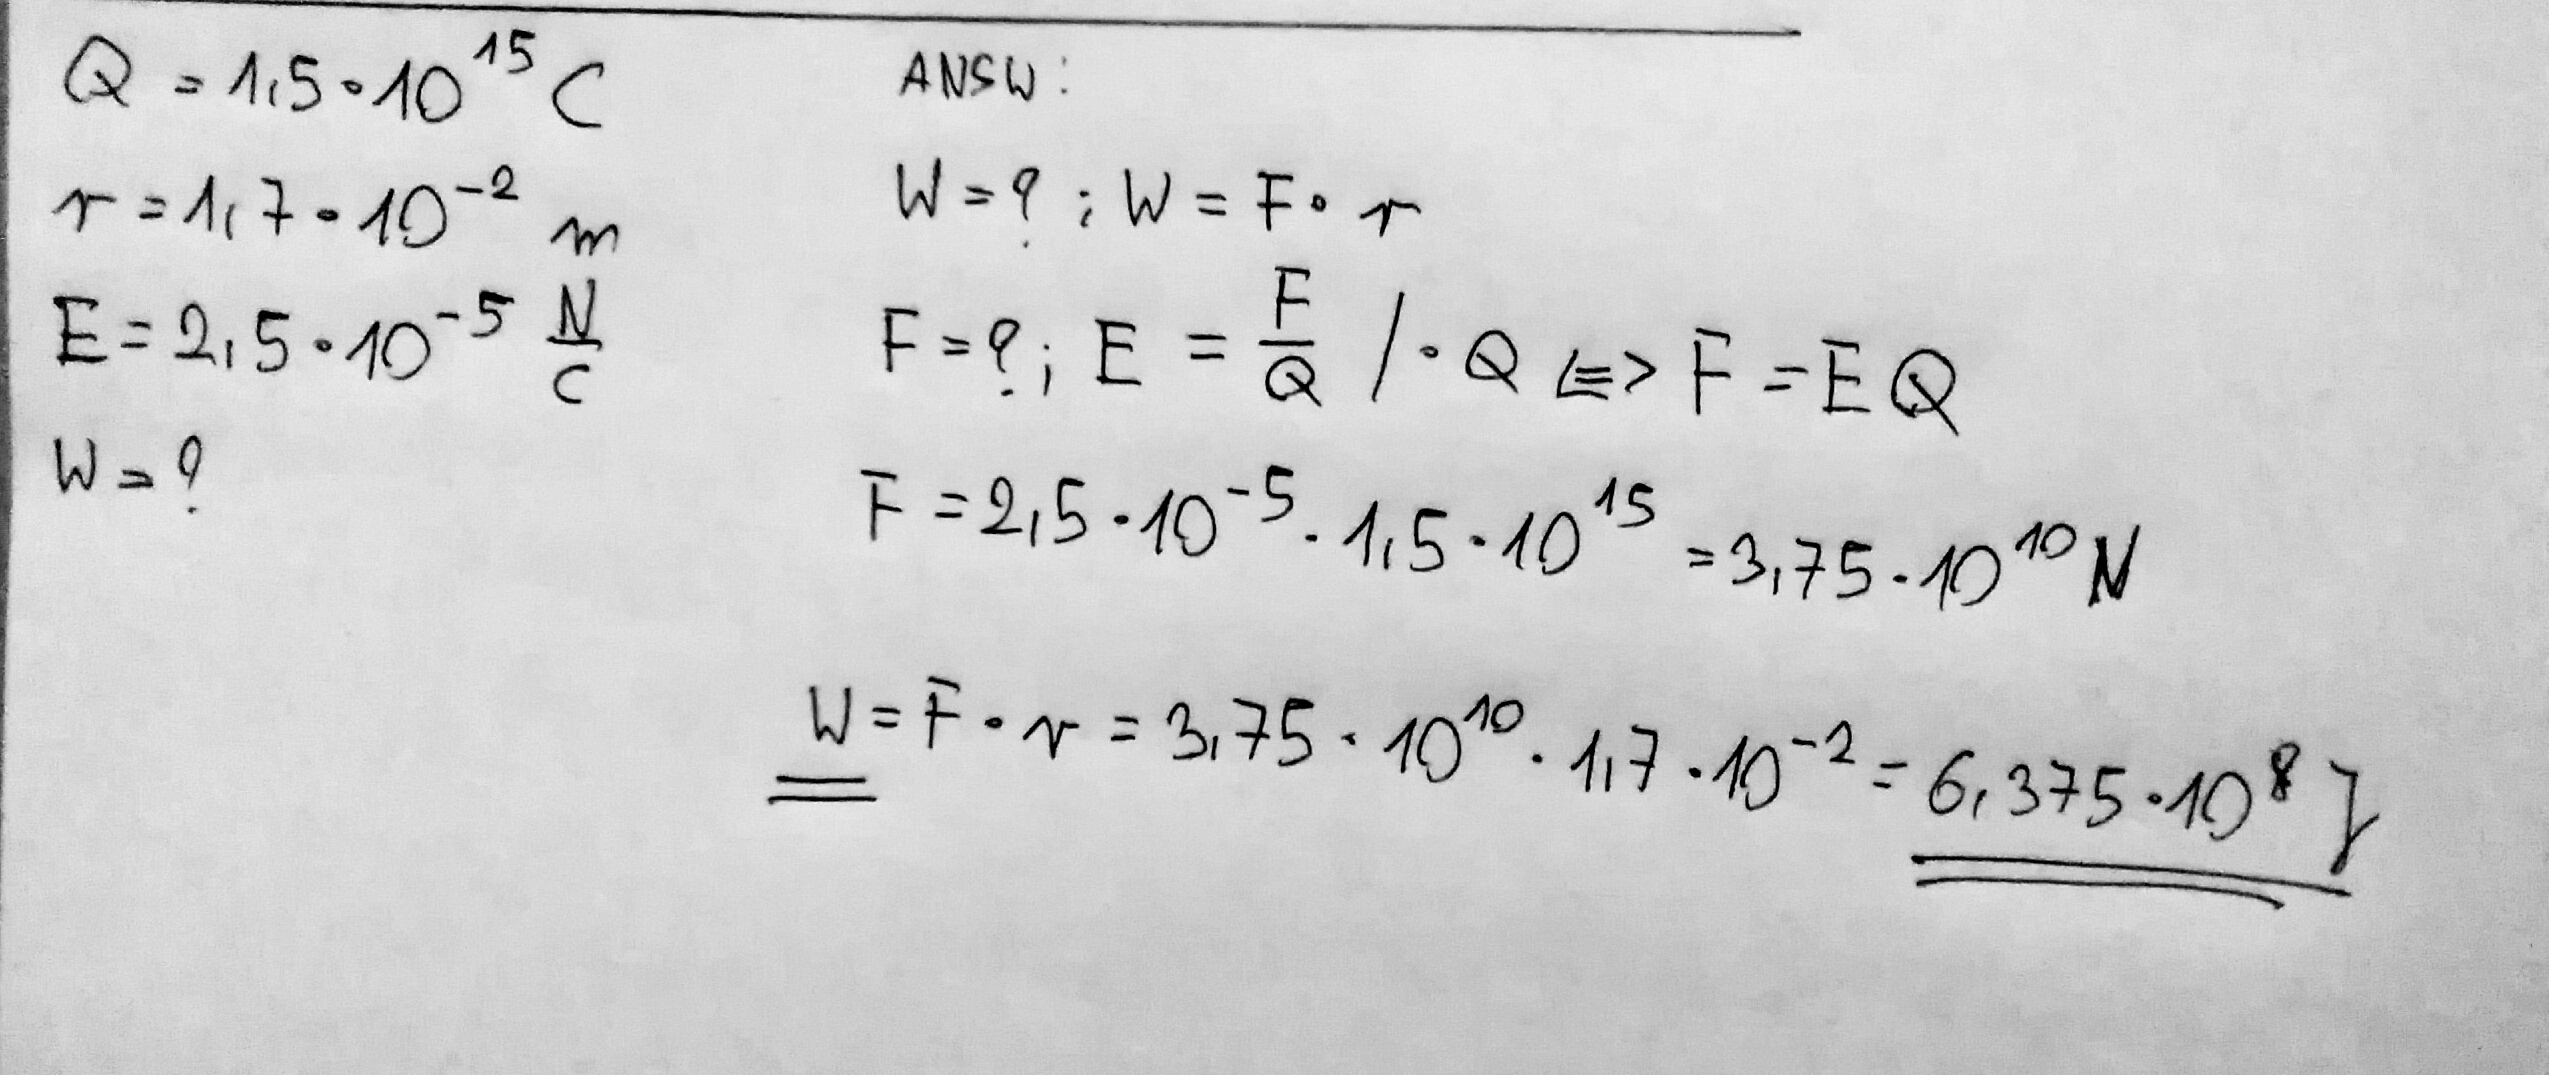 Q = 1,5 · 10^15 C
r = 1,7 · 10^-2 m
E = 2,5 · 10^-5 N/C
W = ?
ANSW:
W = ? ; W = F · r
F = ? ; E = F/Q / · Q <=> F = EQ
F = 2,5 · 10^-5 · 1,5 · 10^15 = 3,75 · 10^10 N
W = F · r = 3,75 · 10^10 · 1,7 · 10^-2 = 6,375 · 10^8 J